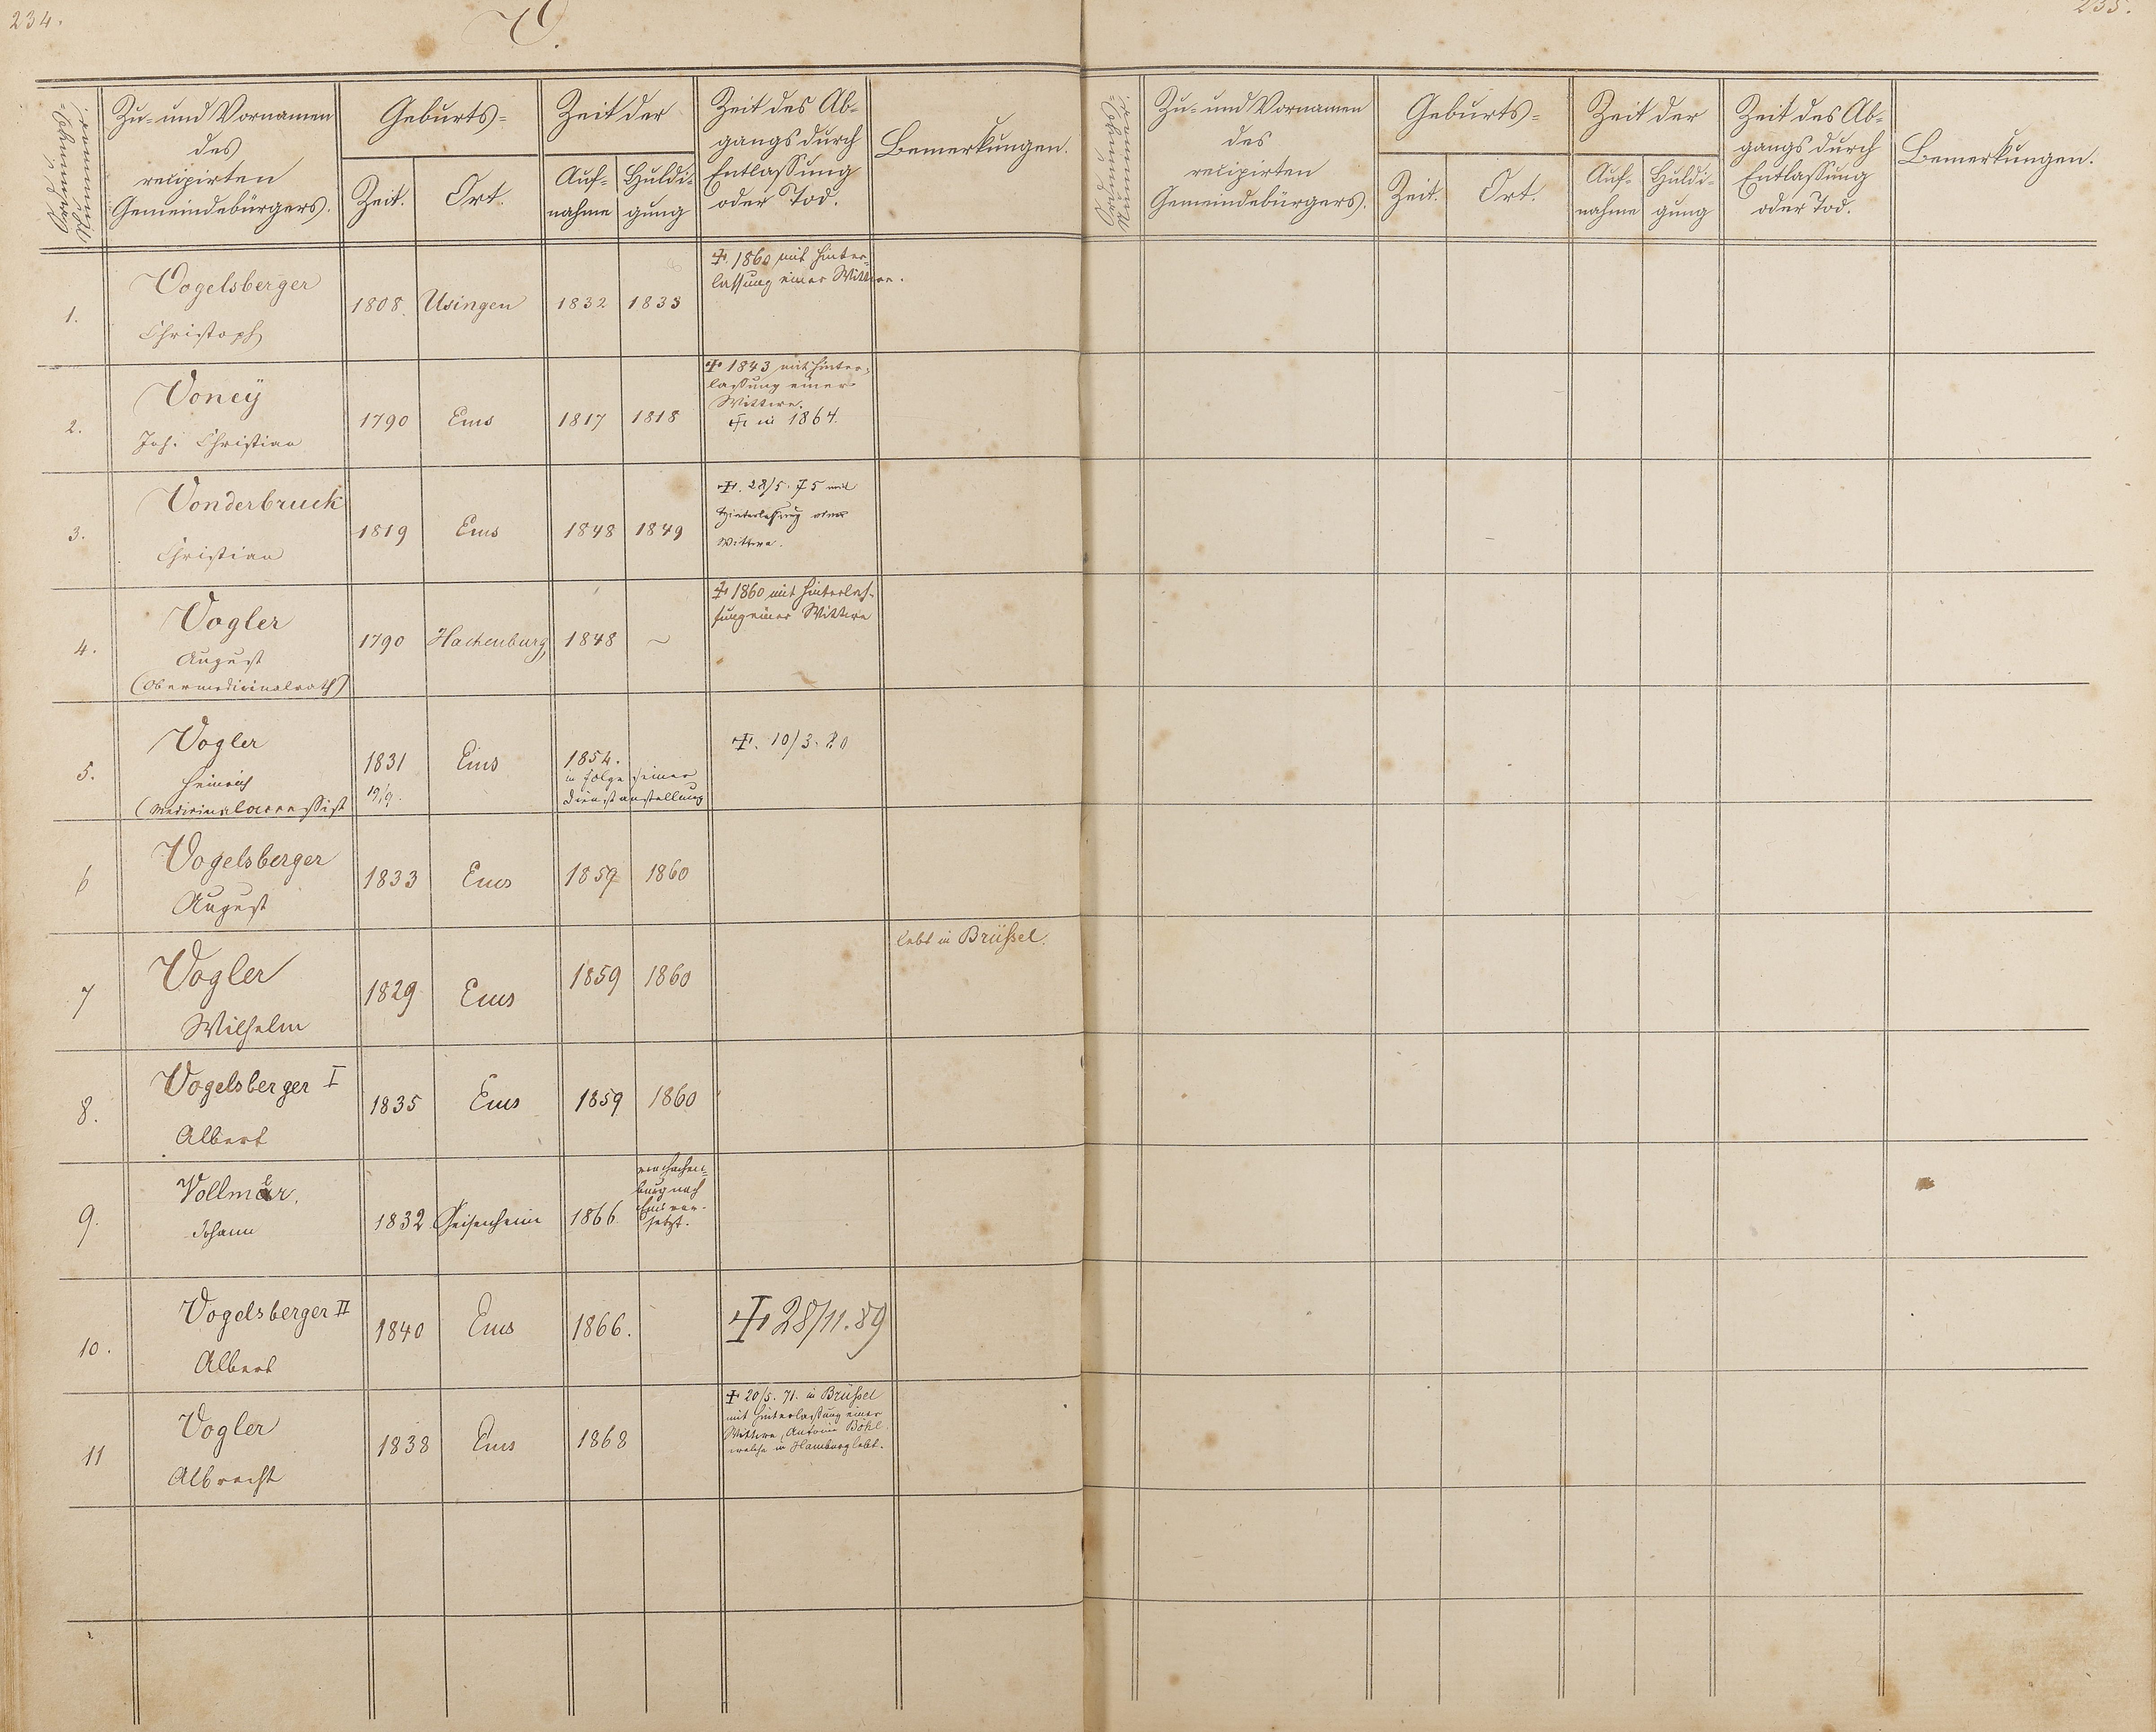 234.
V.
235.
Ordnungs-
Nummer.
Zu- und Vornamen
des
recipirten
Gemeindebürgers.
Geburts-
Zeit.
Ort.
Zeit der
Auf-
nahme
Huldi-
gung
Zeit des Ab-
gangs durch
Entlassung
oder Tod.
Bemerkungen.
1.
Vogelsberger
Christoph
1808.
Usingen
1832
1833
† 1860 mit Hinter-
lassung einer Wittwe.
2.
Voney
Joh. Christian
1790
Ems
1817
1818
† 1843 mit Hinter-
lassung einer
Wittwe.
† in 1864.
3.
Vonderbruck
Christian
1819
Ems
1848
1849
†. 28/5. 75 mit
Hinterlassung einer
Wittwe.
4.
Vogler
August
(Obermedicinalrath)
1790
Hachenburg
1848
~
† 1860 mit Hinterlas-
sung einer Wittwe
5.
Vogler
Heinrich
(Medicinalaccessist
1831
19/9.
Ems
1854.
in Folge seiner
Dienstanstellung
†. 10/3. 20
6
Vogelsberger
August
1833
Ems
1859
1860
7
Vogler
Wilhelm
1829
Ems
1859
1860
lebt in Brüßel.
8.
Vogelsberger I
Albert
1835
Ems
1859
1860
9.
Vollmar.
Johann
1832.
Geisenheim
1866
von Hachen-
burg nach
Ems ver-
setzt.
10.
Vogelsberger II
Albert
1840
Ems
1866.
† 28/11.89
11
Vogler
Albrecht
1838
Ems
1868
† 20/5. 71. in Brüßel
mit Hinterlassung einer
Wittwe, Antonie Böhl.
welche in Hamburg lebt.
Ordnungs-
Nummer.
Zu- und Vornamen
des
recipirten
Gemeindebürgers.
Geburts-
Zeit.
Ort.
Zeit der
Auf-
nahme
Huldi-
gung
Zeit des Ab-
gangs durch
Entlassung
oder Tod.
Bemerkungen.